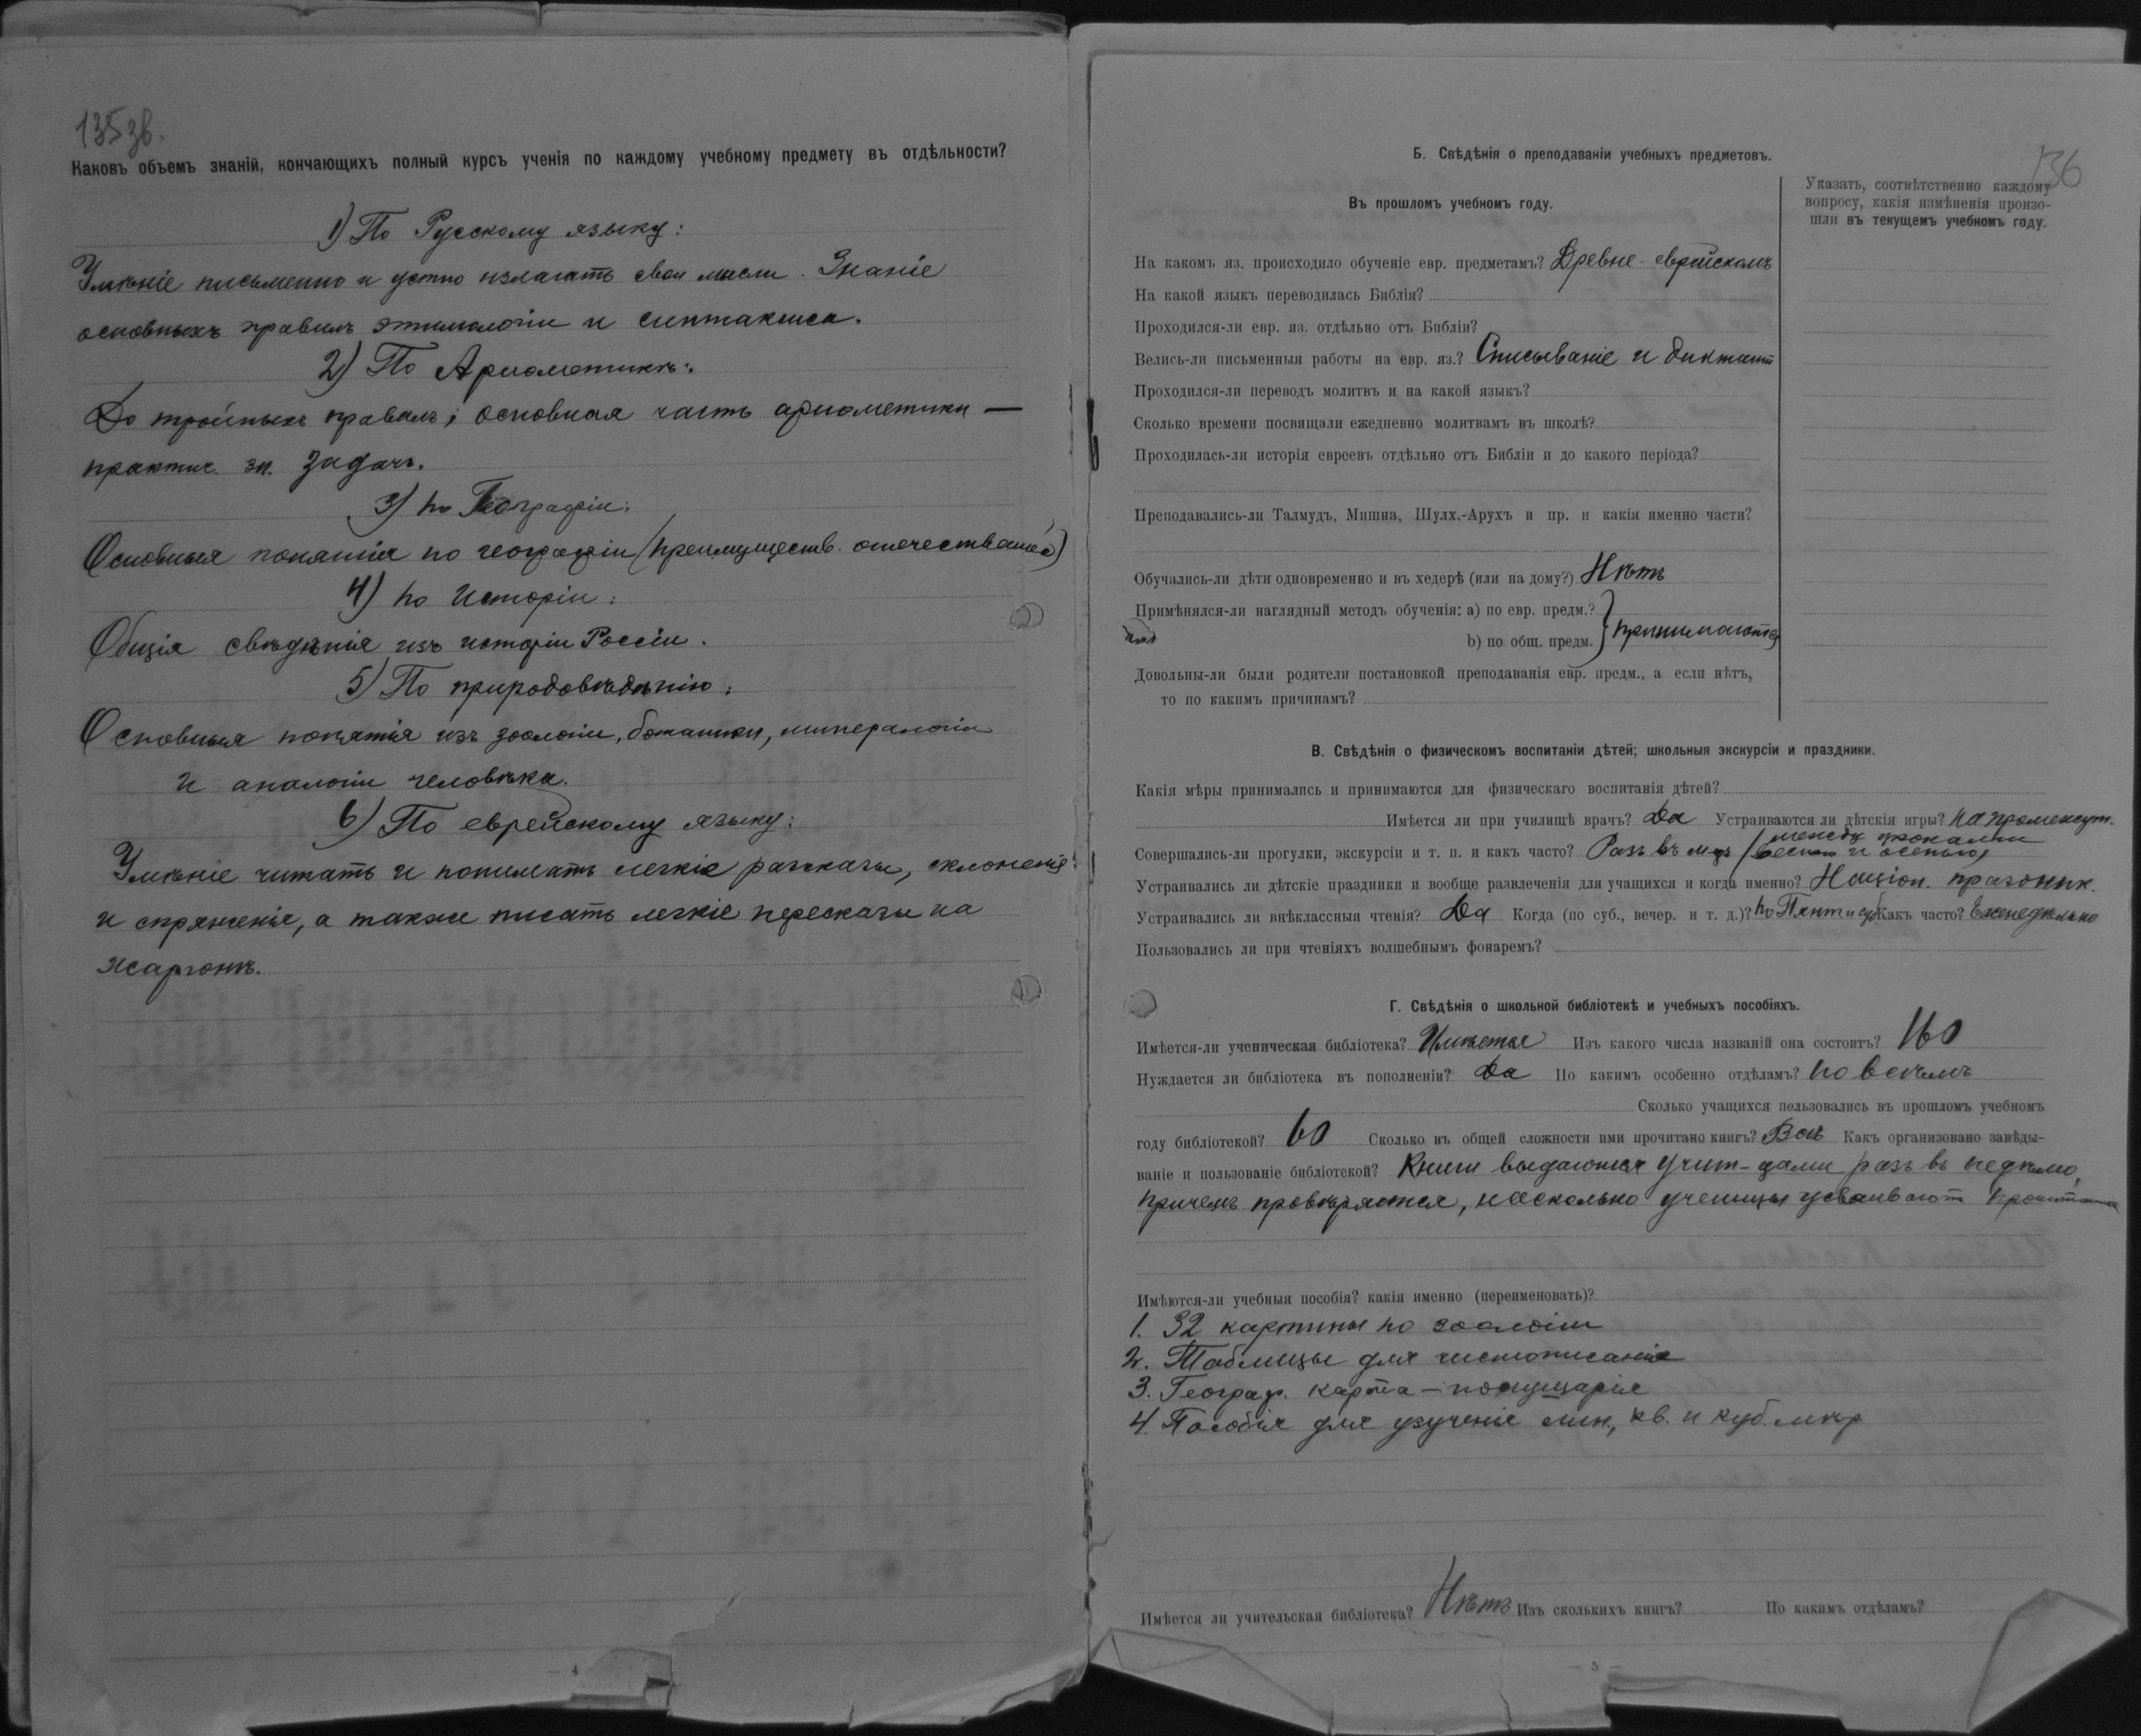 135 зв.
Каковъ объемъ знаній, кончающихъ полный курсъ ученія по каждому учебному предмету въ отдѣльности?
1) По Русскому языку:
Умѣніе письменно и устно излагать свои мысли. Знаніе
основныхъ правилъ этимологіи и синтаксиса.
2) По Ариѳметикѣ:
До тройныхъ правилъ; основная часть ариѳметики —
практич. зн. задачъ.
3) по Географіи:
Основныя понятія по географіи (преимуществ. отечества)
4) по Исторіи:
Общія свѣдѣнія изъ исторіи Россіи.
5) По природовѣдѣнію:
Основныя понятія изъ зоологіи, ботаники, минералогіи
и аналогіи человѣка.
6) По еврейскому языку:
Умѣніе читать и понимать легкіе разсказы, склоненіе
и спряженіе, а также писать легкіе пересказы на
жаргонѣ.
— 4
136
Б. Свѣдѣнія о преподаваніи учебныхъ предметовъ.
Въ прошломъ учебномъ году.
Указать, соотвѣтственно каждому
вопросу, какія измѣненія произо-
шли въ текущемъ учебномъ году.
На какомъ яз. происходило обученіе евр. предметамъ? Древне-еврейскомъ
На какой языкъ переводилась Библія?
Проходился-ли евр. яз. отдѣльно отъ Библіи?
Велись-ли письменныя работы на евр. яз.? Списываніе и диктантъ
Проходился-ли переводъ молитвъ и на какой языкъ?
Сколько времени посвящали ежедневно молитвамъ въ школѣ?
Проходилась-ли исторія евреевъ отдѣльно отъ Библіи и до какого періода?
Преподавались-ли Талмудъ, Мишна, Шулх.-Арухъ и пр. и какія именно части?
Обучались-ли дѣти одновременно и въ хедерѣ (или на дому?) Нѣтъ
Примѣнялся-ли наглядный методъ обученія: а) по евр. предм.?
b) по общ. предм.
Довольны-ли были родители постановкой преподаванія евр. предм., а если нѣтъ,
то по какимъ причинамъ?
В. Свѣдѣнія о физическомъ воспитаніи дѣтей; школьныя экскурсіи и праздники.
Какія мѣры принимались и принимаются для физическаго воспитанія дѣтей?
Имѣется ли при училищѣ врачъ? Да Устраиваются ли дѣтскія игры? На промежут.
между уроками
Совершались-ли прогулки, экскурсіи и т. п. и какъ часто? Разъ въ мѣс (весною и осенью)
Устраивались ли дѣтскіе праздники и вообще развлеченія для учащихся и когда именно? Націон. праздник.
Устраивались ли внѣклассныя чтенія? Да Когда (по суб., вечер. и т. д.)? по Пянт и суб Какъ часто? Еженедѣльно
Пользовались ли при чтеніяхъ волшебнымъ фонаремъ?
Г. Свѣдѣнія о школьной библіотекѣ и учебныхъ пособіяхъ.
Имѣется-ли ученическая библіотека? Имѣется Изъ какого числа названій она состоитъ? 160
Нуждается ли библіотека въ пополненіи? Да По какимъ особенно отдѣламъ? По всѣмъ
Сколько учащихся пользовались въ прошломъ учебномъ
году библіотекой? 60 Сколько въ общей сложности ими прочитано книгъ? Всѣ Какъ организовано завѣды-
ваніе и пользованіе библіотекой? Книги выдаются учит-цами разъ въ недѣлю,
причемъ провѣряется, насколько ученицы усваиваютъ
Имѣются-ли учебныя пособія? какія именно (переименовать)?
1. 32 картины по зоологіи
2. Таблицы для чистописанія
3. Географ. карта — полушарія
4. Пособія для узученіе лин., кв. и куб. мѣр
Имѣется ли учительская библіотека? Нѣтъ Изъ сколькихъ книгъ? По какимъ отдѣламъ?
— 5 —